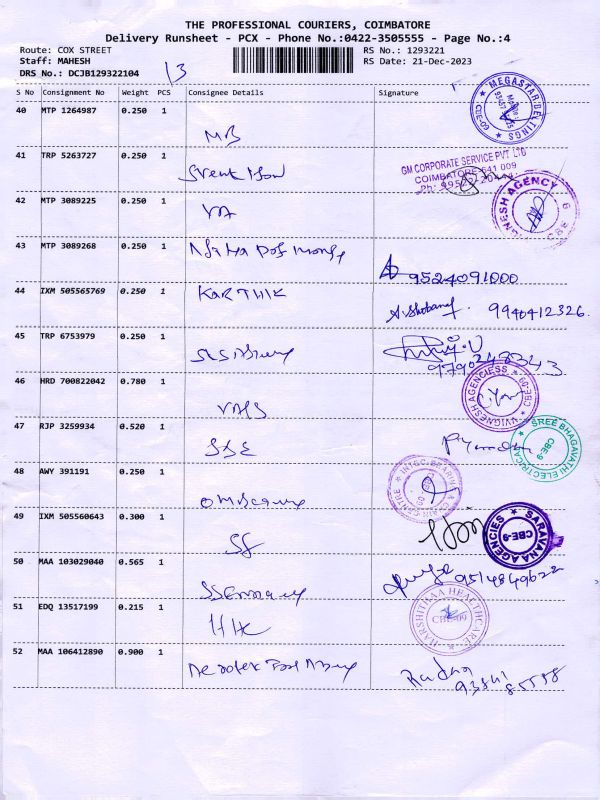 THE PROFESSIONAL COURIERS, COIMBATORE
Delivery Runsheet - PCX - Phone No.:0422-3505555 - Page No.:4
Route: COX STREET
RS No.: 1293221
Staff: MAHESH
RS Date: 21-Dec-2023
DRS No.: DCJB129322104
13
S No Consignment No Weight PCS Consignee Details Signature
40 MTP 1264987 0.250 1
MB
MEGASTAR BELTINGS CBE-09
41 TRP 5263727 0.250 1
GM CORPORATE SERVICE PVT LTD
COIMBATORE-641 009
42 MTP 3089225 0.250 1
VA
VIGNESH AGENCY
43 MTP 3089268 0.250 1
9524091000
44 IXM 505565769 0.250 1
KARTHIK
A. Shobana 9940412326
45 TRP 6753979 0.250 1
9790248343
46 HRD 700822042 0.780 1
VAHS
VIGNESH AGENCIESS CBE-09
47 RJP 3259934 0.520 1
SBE
SREE BHAGAVATHI ELECTRICAL CBE-9
48 AWY 391191 0.250 1
49 IXM 505560643 0.300 1
SF
SARAVANA AGENCIES CBE-9
50 MAA 103029040 0.565 1
9514849622
51 EDQ 13517199 0.215 1
HHC
HARSHITHAA HEALTHCARE CBE-09
52 MAA 106412890 0.900 1
Radha